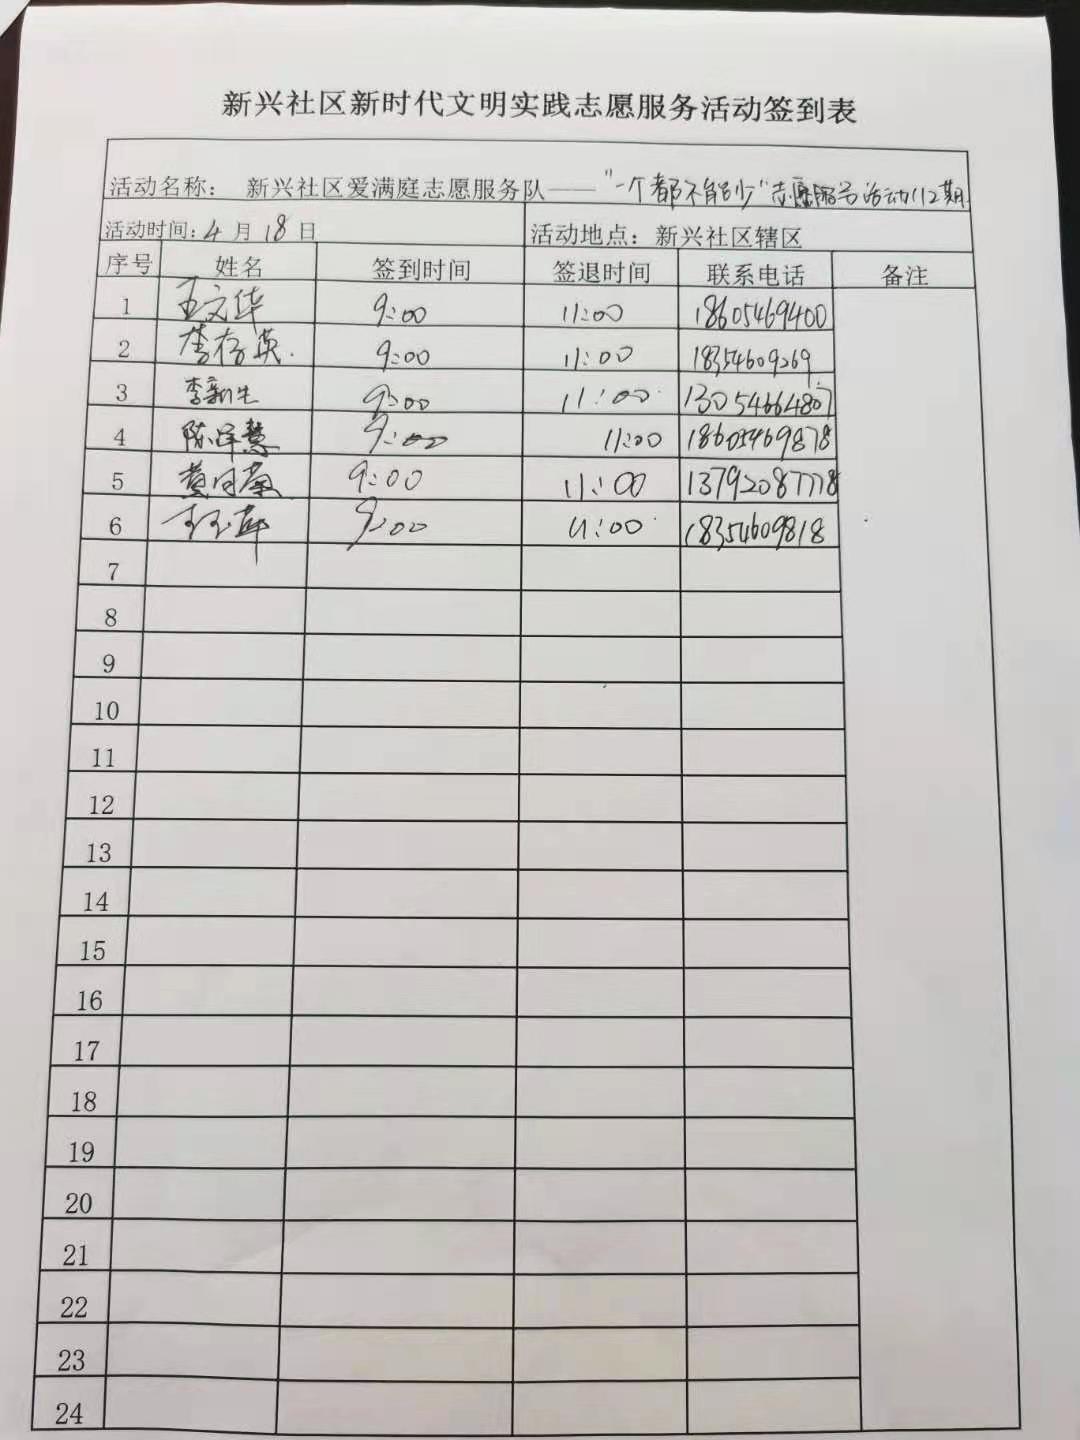 新兴社区新时代文明实践志愿服务活动签到表
活动名称： 新兴社区爱满庭志愿服务队——“一个都不能少”志愿服务活动112期
活动时间：4月18日 活动地点：新兴社区辖区
序号 姓名 签到时间 签退时间 联系电话 备注
1 王文华 9:00 11:00 18605469400
2 李存英 9:00 11:00 18354609269
3 李新生 9:00 11:00 13054664807
4 陈泽慧 9:00 11:00 18605469878
5 黄月菊 9:00 11:00 13792087778
6 王玉萍 9:00 11:00 18354609818
7
8
9
10
11
12
13
14
15
16
17
18
19
20
21
22
23
24